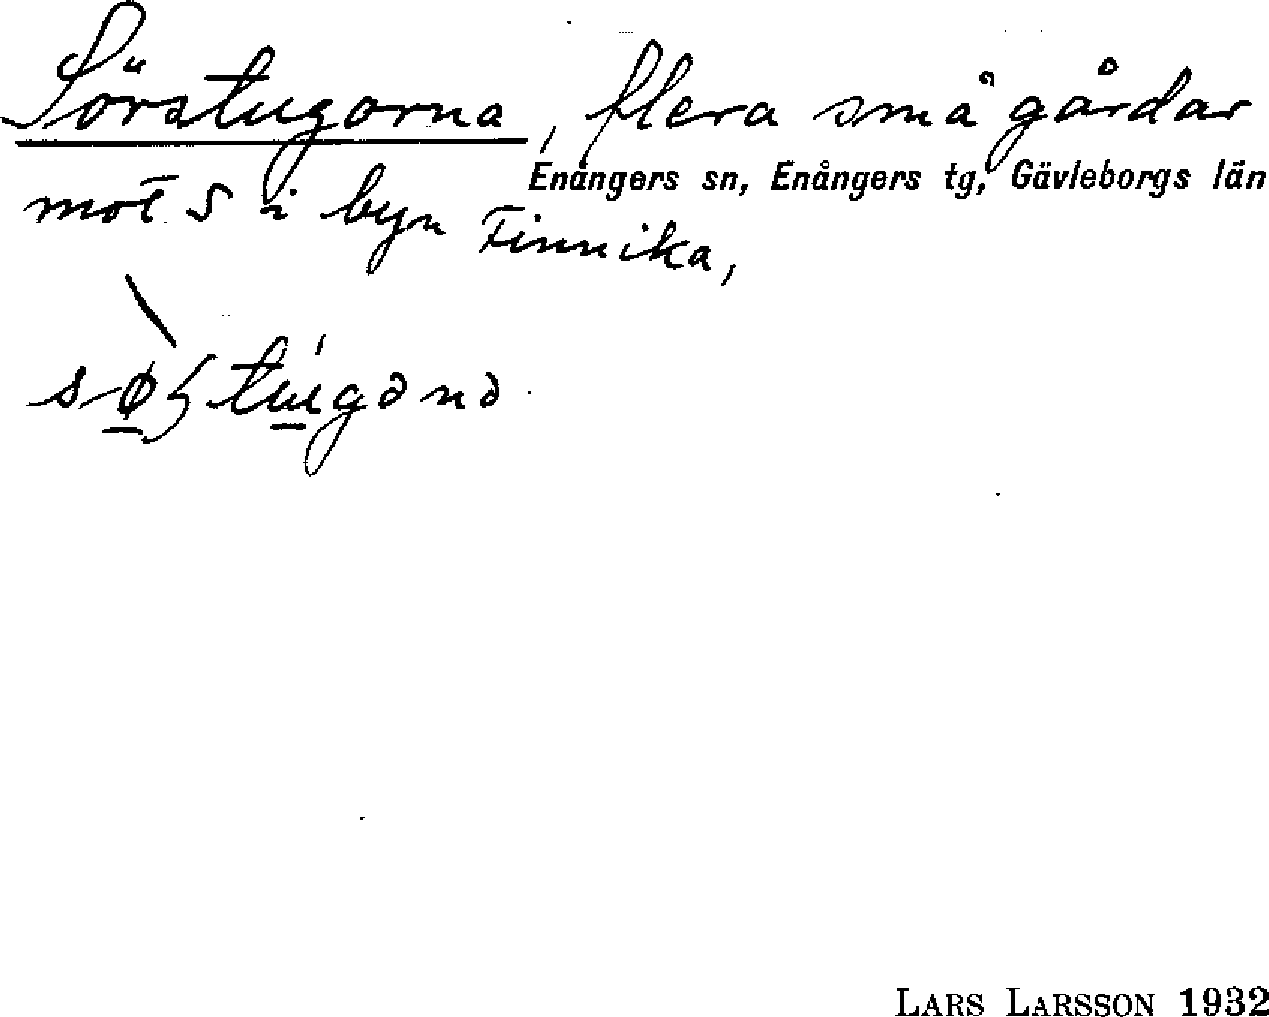 Sörstugorna, flera små gårdar
Enångers sn, Enångers tg, Gävleborgs län
mot S i byn Finnika,
LARS LARSSON 1932